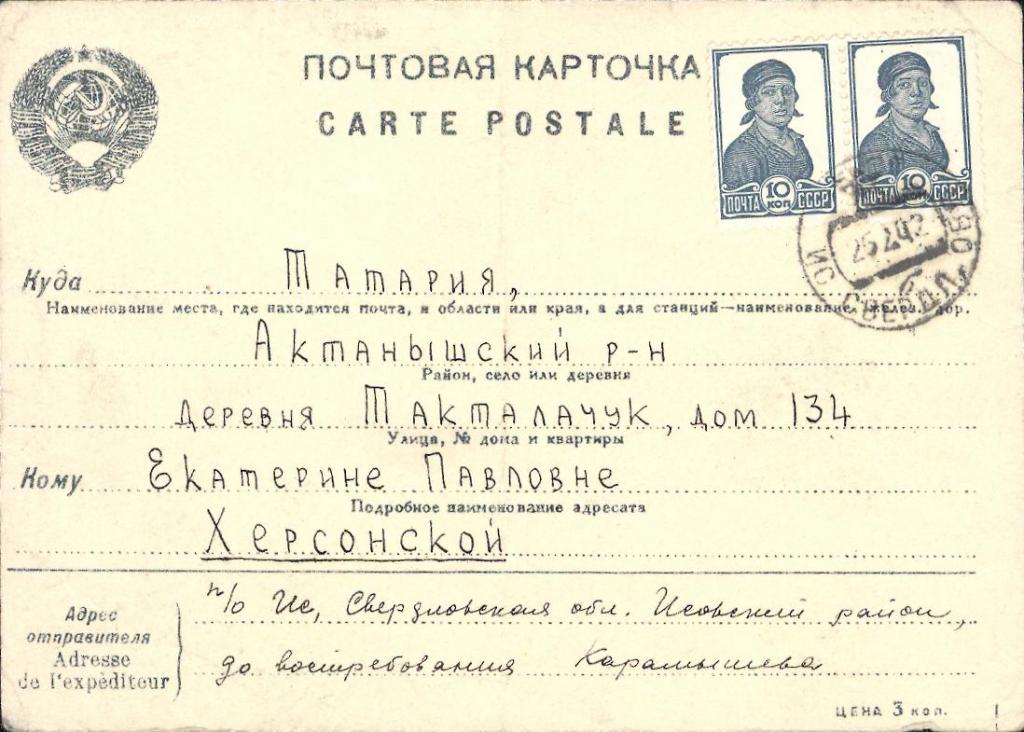 ПОЧТОВАЯ КАРТОЧКА
CARTE POSTALE
10 КОП
ПОЧТА СССР
10 КОП
ПОЧТА СССР
25 42
ИС СВЕРДЛ. ОБ
Куда Татария,
Наименование места, где находится почта, и области или края, а для станций—наименование желез. дор.
Актанышский р-н
Район, село или деревня
деревня Такталачук, дом 134
Улица, № дома и квартиры
Кому Екатерине Павловне
Подробное наименование адресата
Херсонской
Адрес отправителя
Adresse de l'expéditeur
п/о Ис, Свердловская обл. Исовский район,
до востребования Карамышева
ЦЕНА 3 коп.